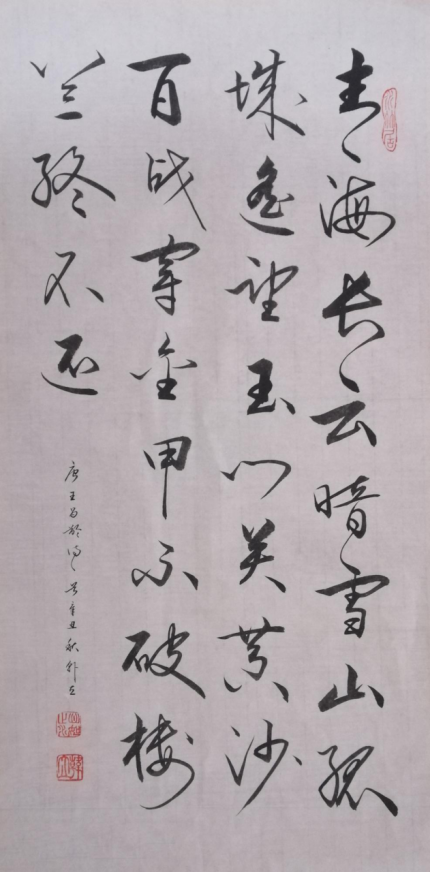 青海长云暗雪山孤
城遥望玉门关黄沙
百战穿金甲不破楼
兰终不还
唐王昌龄诗一首辛丑秋